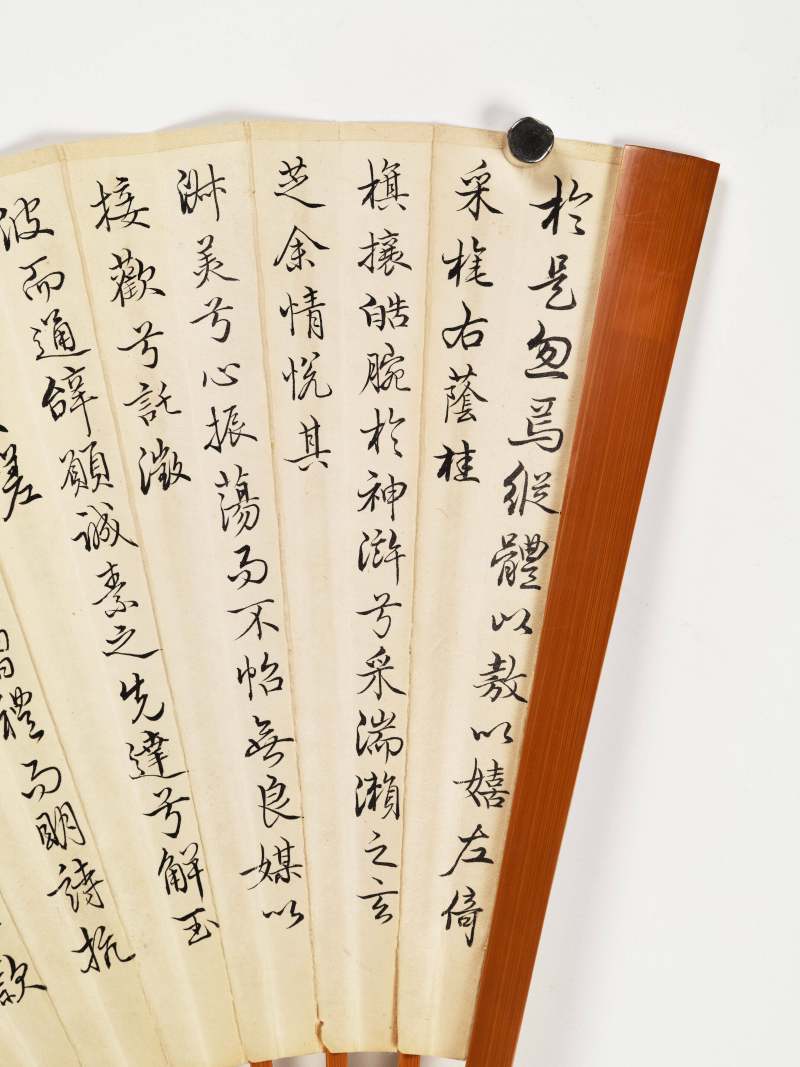 於是忽焉縱體以敖以嬉左倚
采旄右蔭桂
旗攘皓腕於神滸兮采湍瀨之玄
芝余情悅其
淑美兮心振蕩而不怡無良媒以
接歡兮託微
波而通辭願誠素之先達兮解玉
禮而明詩抗
款